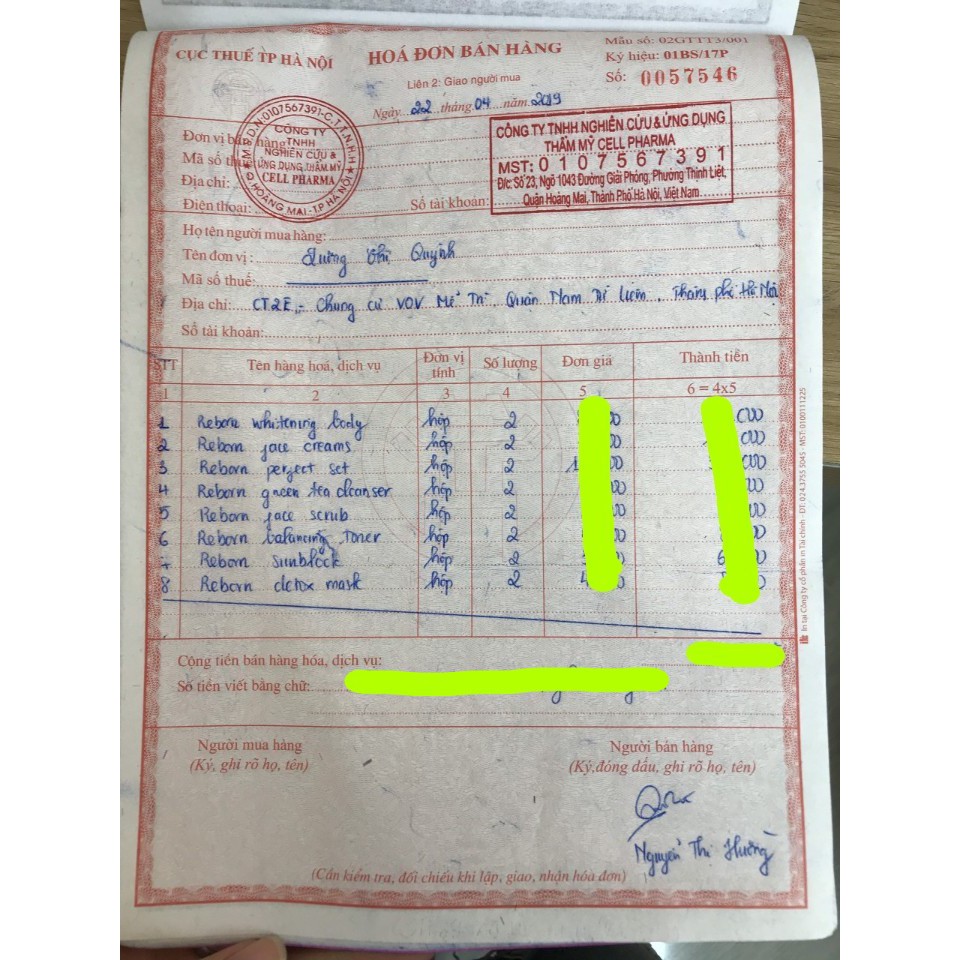 CỤC THUẾ TP HÀ NỘI
HOÁ ĐƠN BÁN HÀNG
Mẫu số: 02GTTT3/001
Ký hiệu: 01BS/17P
Liên 2: Giao người mua
Số: 0057546
Ngày 22 tháng 04 năm 2019
M.S.D.N:0107567391-C.T.T.N.H.H
CÔNG TY
TNHH
NGHIÊN CỨU &
ỨNG DỤNG THẨM MỸ
CELL PHARMA
Q.HOÀNG MAI-T.P HÀ NỘI
CÔNG TY TNHH NGHIÊN CỨU & ỨNG DỤNG
THẨM MỸ CELL PHARMA
MST: 0 1 0 7 5 6 7 3 9 1
Đ/c: Số 23, Ngõ 1043 Đường Giải Phóng, Phường Thịnh Liệt,
Quận Hoàng Mai, Thành Phố Hà Nội, Việt Nam
Đơn vị bán hàng
Mã số thuế
Địa chỉ:
Điện thoại: Số tài khoản:
Họ tên người mua hàng:
Tên đơn vị: Thị Quỳnh
Mã số thuế:
Địa chỉ: CT2E - Chung cư VOV Mễ Trì, Quận Nam Từ Liêm, Thành phố Hà Nội
Số tài khoản:
STT Tên hàng hoá, dịch vụ Đơn vị tính Số lượng Đơn giá Thành tiền
1 2 3 4 5 6 = 4x5
1 Reborn whitening body hộp 2
2 Reborn face creams hộp 2
3 Reborn perfect set hộp 2
4 Reborn green tea cleanser hộp 2
5 Reborn face scrub hộp 2
6 Reborn balancing toner hộp 2
7 Reborn sunblock hộp 2
8 Reborn detox mask hộp 2
Cộng tiền bán hàng hóa, dịch vụ:
Số tiền viết bằng chữ:
Người mua hàng
(Ký, ghi rõ họ, tên)
Người bán hàng
(Ký,đóng dấu, ghi rõ họ, tên)
Nguyễn Thị Hường
(Cần kiểm tra, đối chiếu khi lập, giao, nhận hóa đơn)
In tại Công ty cổ phần in Tài chính - ĐT: 024.3755 5045 - MST: 0100111225